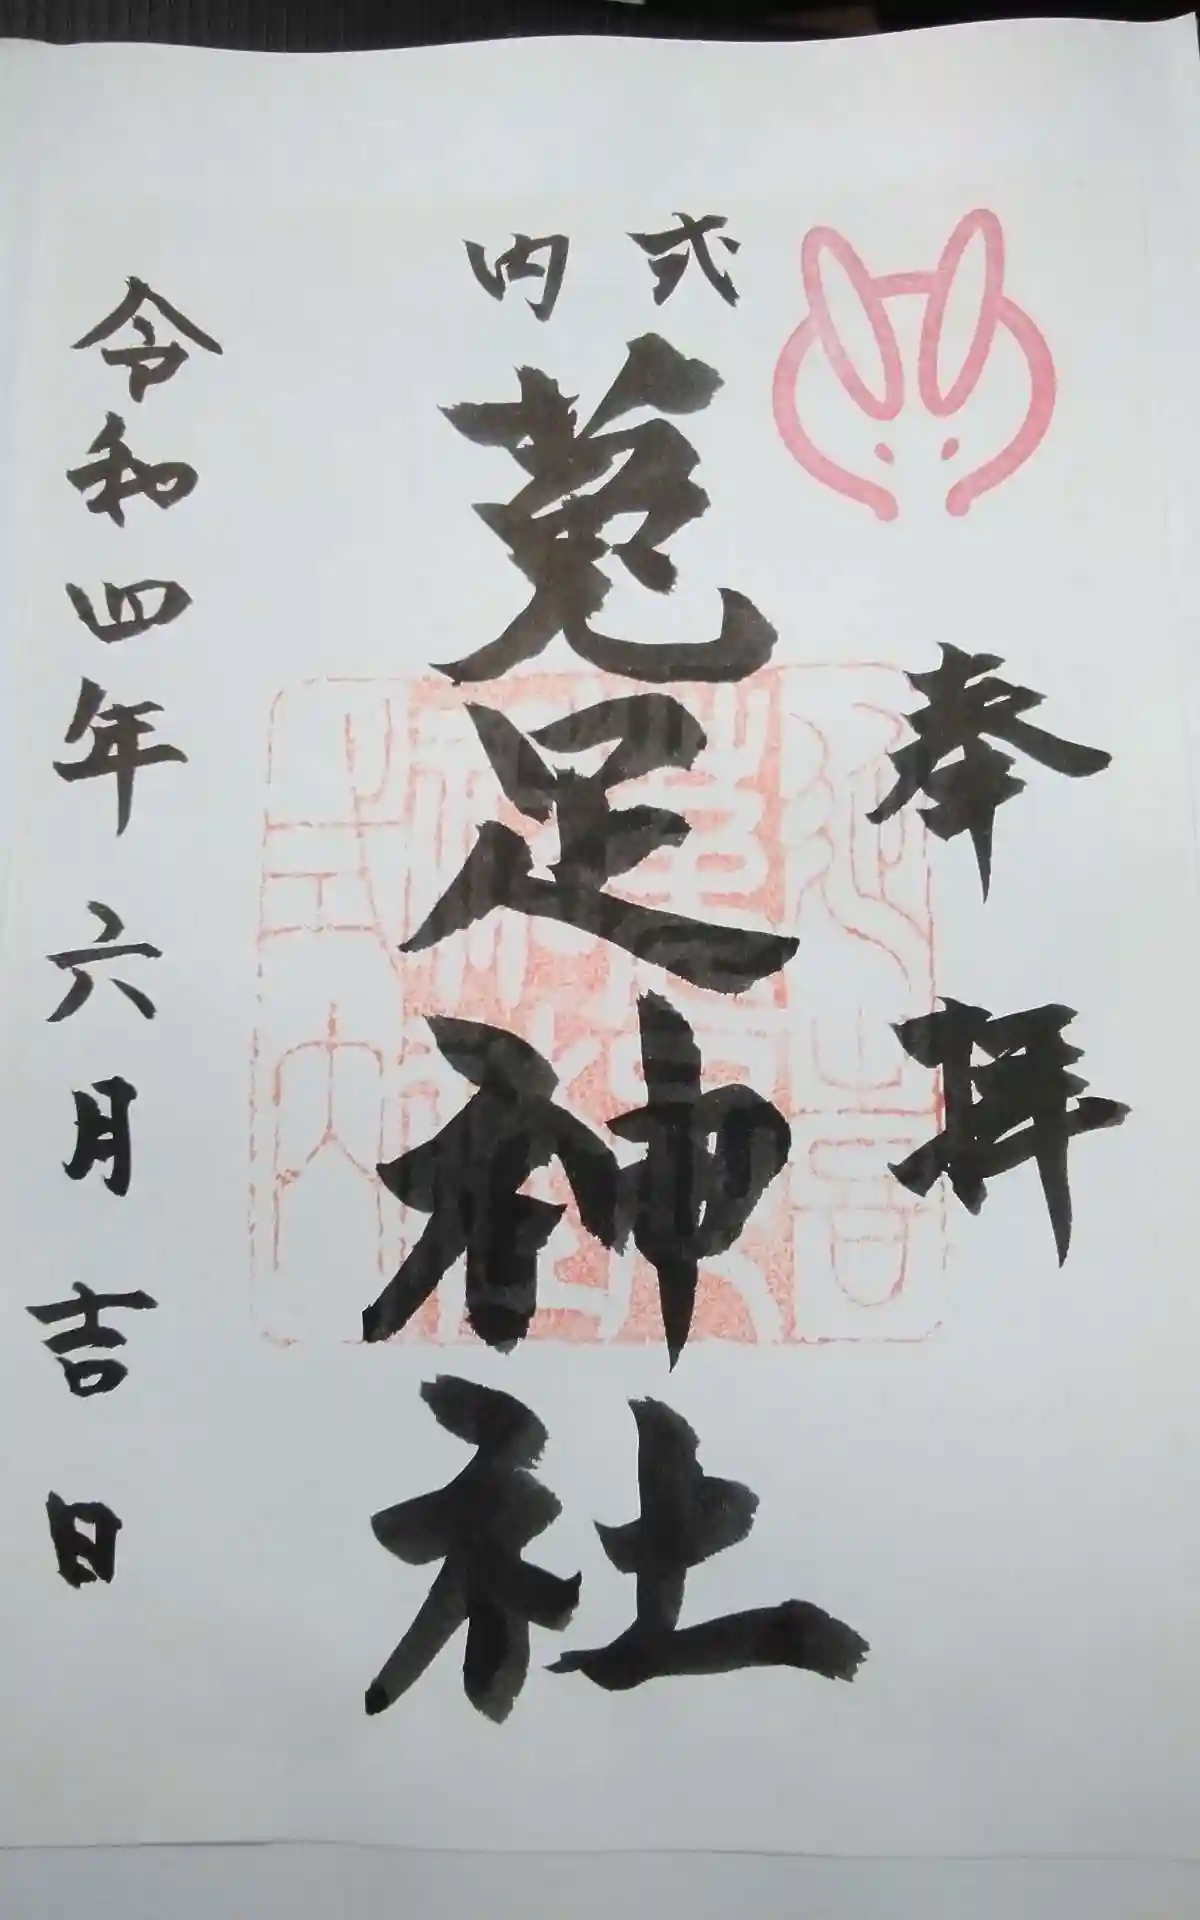 奉拝
式内
菟足神社
令和四年六月吉日